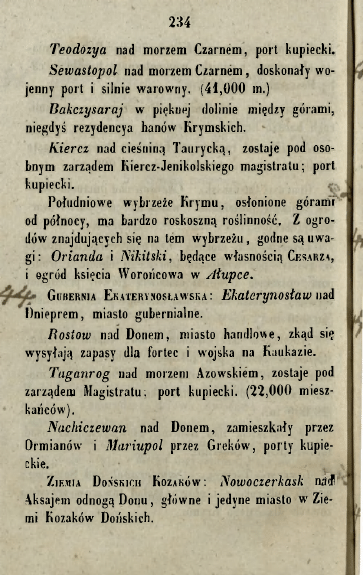 234
Teodozya nad morzem Czarnem, port kupiecki.
Sewastopol nad morzem Czarnem, doskonały wo-
jenny port i silnie warowny. (41,000 m.)
Bakczysaraj w pięknej dolinie między górami,
niegdyś rezydencya hanów Krymskich.
Kiercz nad cieśniną Taurycką, zostaje pod oso-
bnym zarządem Kiercz-Jenikolskiego magistratu; port
kupiecki.
Południowe wybrzeże Krymu, osłonione górami
od północy, ma bardzo roskoszną roślinność. Z ogro-
dów znajdujących się na tém wybrzeżu, godne są uwa-
gi: Orianda i Nikitski, będące własnością Cesarza,
i ogród księcia Worońcowa w Ałupce.
44.
Gubernia Ekaterynosławska: Ekaterynosław nad
Dnieprem, miasto gubernialne.
Rostow nad Donem, miasto handlowe, zkąd się
wysyłają zapasy dla fortec i wojska na Kaukazie.
Taganrog nad morzem Azowskiém, zostaje pod
zarządem Magistratu, port kupiecki. (22,000 miesz-
kańców).
Nachiczewan nad Donem, zamieszkały przez
Ormianów i Mariupol przez Greków, porty kupie-
ckie.
Ziemia Dońskich Kozaków: Nowoczerkask nad
Aksajem odnogą Donu, główne i jedyne miasto w Zie-
mi Kozaków Dońskich.